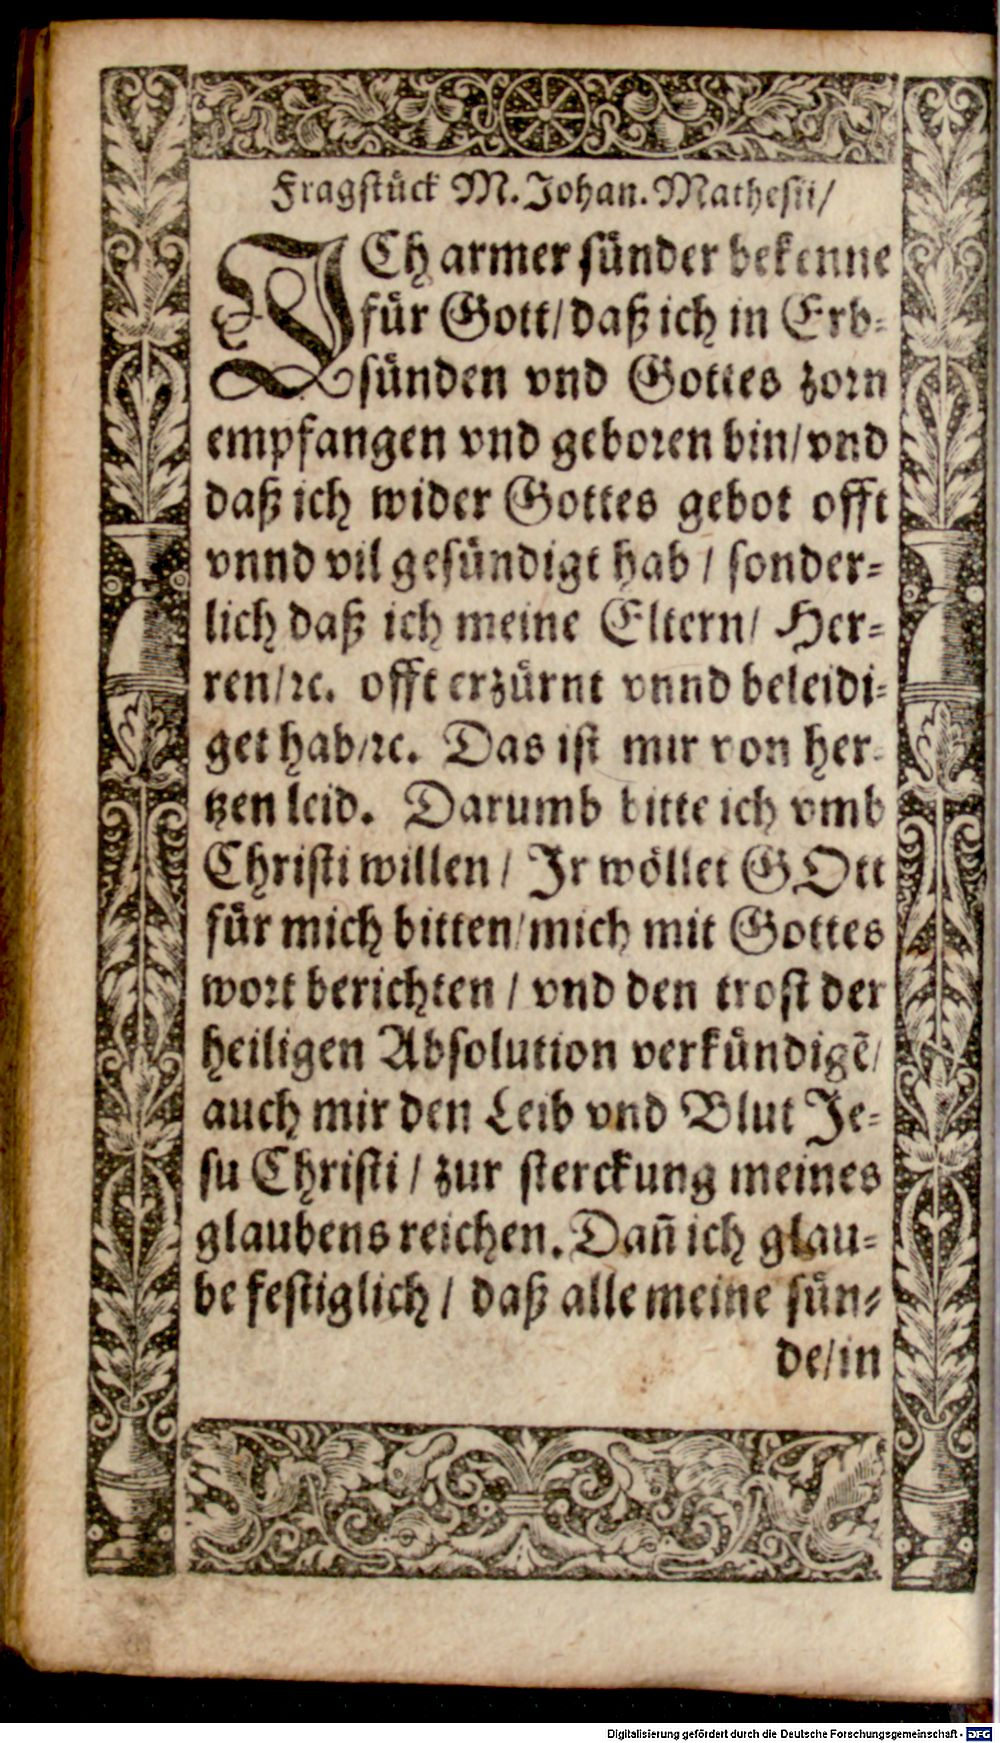 Fragstück M. Johan. Mathesii/
ICh armer sünder bekenne
für Gott/ daß ich in Erb-
sünden vnd Gottes zorn
empfangen vnd geboren bin/ vnd
daß ich wider Gottes gebot offt
vnnd vil gesündigt hab / sonder-
lich daß ich meine Eltern/ Her-
ren/ ꝛc. offt erzürnt vnnd beleidi-
get hab/ ꝛc. Das ist mir von her-
tzen leid. Darumb bitte ich vmb
Christi willen / Ir wöllet GOtt
für mich bitten/ mich mit Gottes
wort berichten / vnd den trost der
heiligen Absolution verkündigẽ/
auch mir den Leib vnd Blut Je-
su Christi / zur sterckung meines
glaubens reichen. Dañ ich glau-
be festiglich / daß alle meine sün-
de/ in
Digitalisierung gefördert durch die Deutsche Forschungsgemeinschaft - DFG